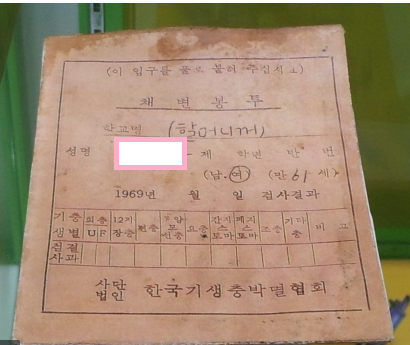 (이 입구를 풀로 붙혀 주십시오)
채 변 봉 투
학교명 (할머니께)
성명 제 학년 반 번
(남. 여) (만 61 세)
1969년 월 일 검사결과
기생충별 회충 UF 12지장충 편충 요충 간지스토마 폐지스토마 조충 기타충 비고
검사결과
사단법인 한국기생충박멸협회